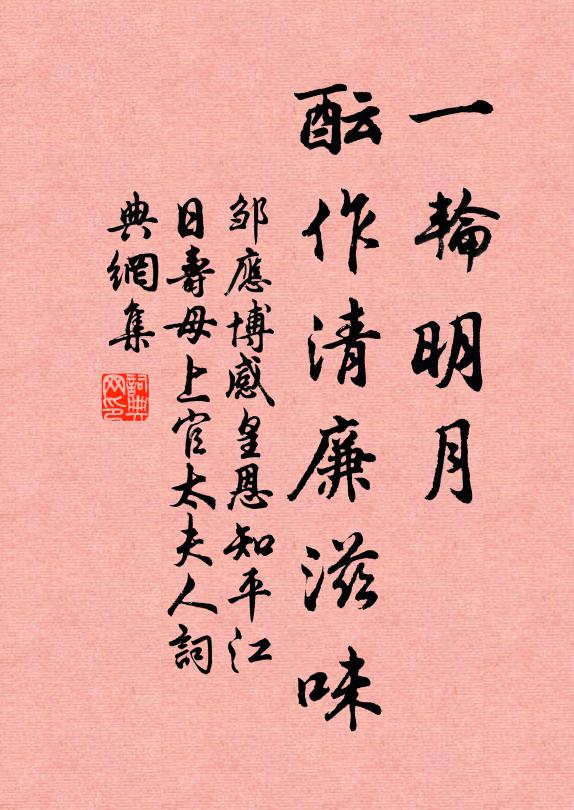 一輪明月
酝作清廉滋味
邹應博感皇恩知平江
日壽母上官太夫人詞
典網集
詞典网印